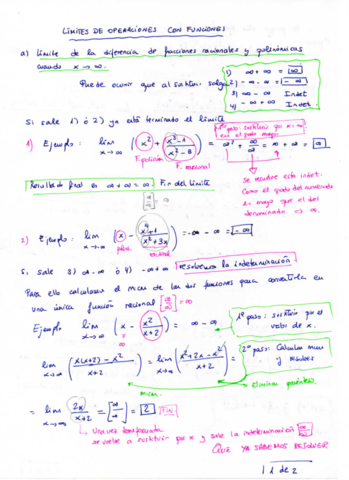 LÍMITES DE OPERACIONES CON FUNCIONES
a) Límite de la diferencia de funciones racionales y polinómicas
cuando x → ∞.
Puede ocurrir que al sustituir salga
1) ∞ + ∞ = ∞
2) - ∞ - ∞ = - ∞
3) ∞ - ∞ Indet
4) - ∞ + ∞ Indet
Si sale 1) ó 2) ya está terminado el límite
1) Ejemplo: lim x→∞ (x² + x³-1 / x²-8) = ∞² + ∞/∞ = ∞ + ∞ = ∞
1er paso: sustituir por x = ∞
en el grado mayor
F. polinom
F. racional
Se resuelve esta indet.
Como el grado del numerador
es mayor que el del
denominador es ∞.
Resultado final es ∞ + ∞ = ∞. Fin del límite
2) Ejemplo: lim x→-∞ (x - / x²+3x) = -∞ - ∞ = -∞
polin
racional
Si sale 3) ∞ - ∞ ó 4) - ∞ + ∞ resolvemos la indeterminación
Para ello calculamos el mcm de las dos funciones para convertirla en
una única función racional [∞/∞] = ∞
Ejemplo lim x→∞ (x - x²/x+2) = ∞ - ∞
1er paso: sustituir por el
valor de x.
lim x→∞ (x(x+2) - x² / x+2) = lim x→∞ (x²+2x-x² / x+2) =
2º paso: Calcular mcm
y reducir
mcm
eliminar paréntesis
= lim x→∞ 2x/x+2 = [∞/∞] = 2 FIN
Una vez
se vuelve a sustituir por x y sale la indeterminación ∞/∞
QUE YA SABEMOS RESOLVER
1 de 2